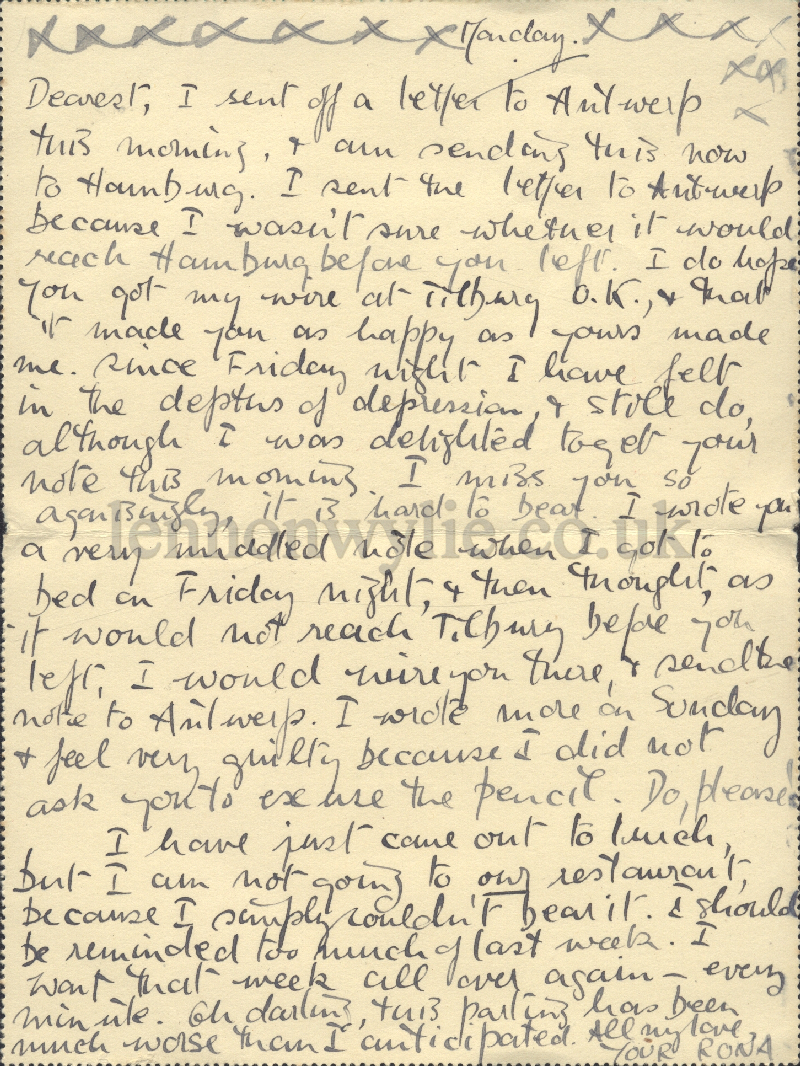 x x x x x x x x Monday. x x x x
x x
x
Dearest, I sent off a letter to Antwerp
this morning, & am sending this now
to Hamburg. I sent the letter to Antwerp
because I wasn't sure whether it would
reach Hamburg before you left. I do hope
you got my wire at Tilbury O.K., & that
it made you as happy as yours made
me. Since Friday night I have felt
in the depths of depression, & still do,
although I was delighted to get your
note this morning. I miss you so
agonisingly, it is hard to bear. I wrote you
a very muddled note when I got to
bed on Friday night, & then thought, as
it would not reach Tilbury before you
left, I would wire you there, & send the
note to Antwerp. I wrote more on Sunday
& feel very guilty because I did not
ask you to excuse the pencil. Do, please.
I have just come out to lunch,
but I am not going to our restaurant,
because I simply couldn't bear it. I should
be reminded too much of last week. I
want that week all over again – every
minute. Oh darling, this parting has been
much worse than I anticipated. All my love,
YOUR RONA
lennonwylie.co.uk